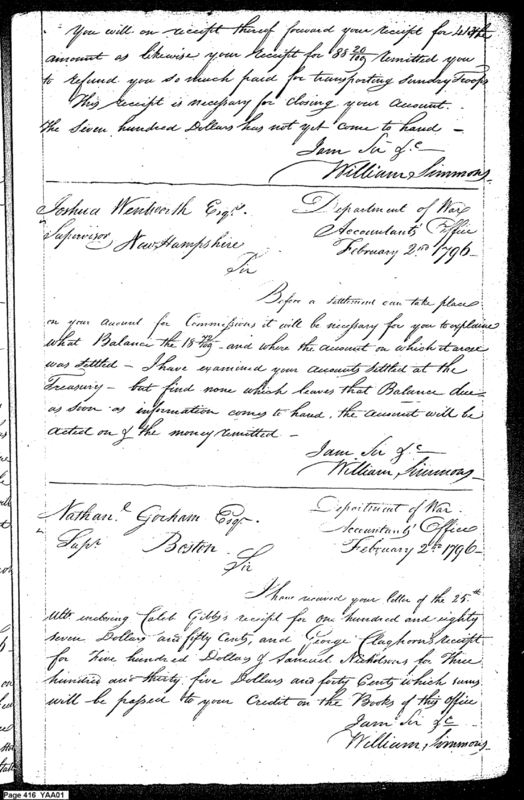 You will on receipt thereof forward your receipt for
amount as likewise your receipt for 88 20/100 remitted you
to refund you so much paid for transporting Sundry Troops
This receipt is necessary for closing your Account.
The Seven hundred Dollars has not yet come to hand —
I am Sir &c
William Simmons
Joshua Wentworth Esqr. Department of War
Supervisor New Hampshire Accountants Office
February 2nd 1796
Sir
Before a settlement can take place
on your account for Commissions it will be necessary for you to explain
what Balance the 18 /100 and where the account on which it arose
was settled — I have examined your accounts settled at the
Treasury — but find none which leaves that Balance due
as soon as information comes to hand, the account will be
acted on & the money remitted —
I am Sir &c
William Simmons
Nathanl Gorham Esqr. Department of War
Supr Boston Accountants Office
February 2nd 1796
Sir
I have received your letter of the 25th
Ulto enclosing Caleb Gibbs's receipt for one hundred and eighty
seven Dollars and fifty Cents, and George Claghorn's receipt
for Five hundred Dollars & Samuel Nicholson's for Three
hundred and thirty five Dollars and forty Cents which sums
will be passed to your Credit on the Books of this Office
I am Sir &c
William Simmons
Page 416 YAA01